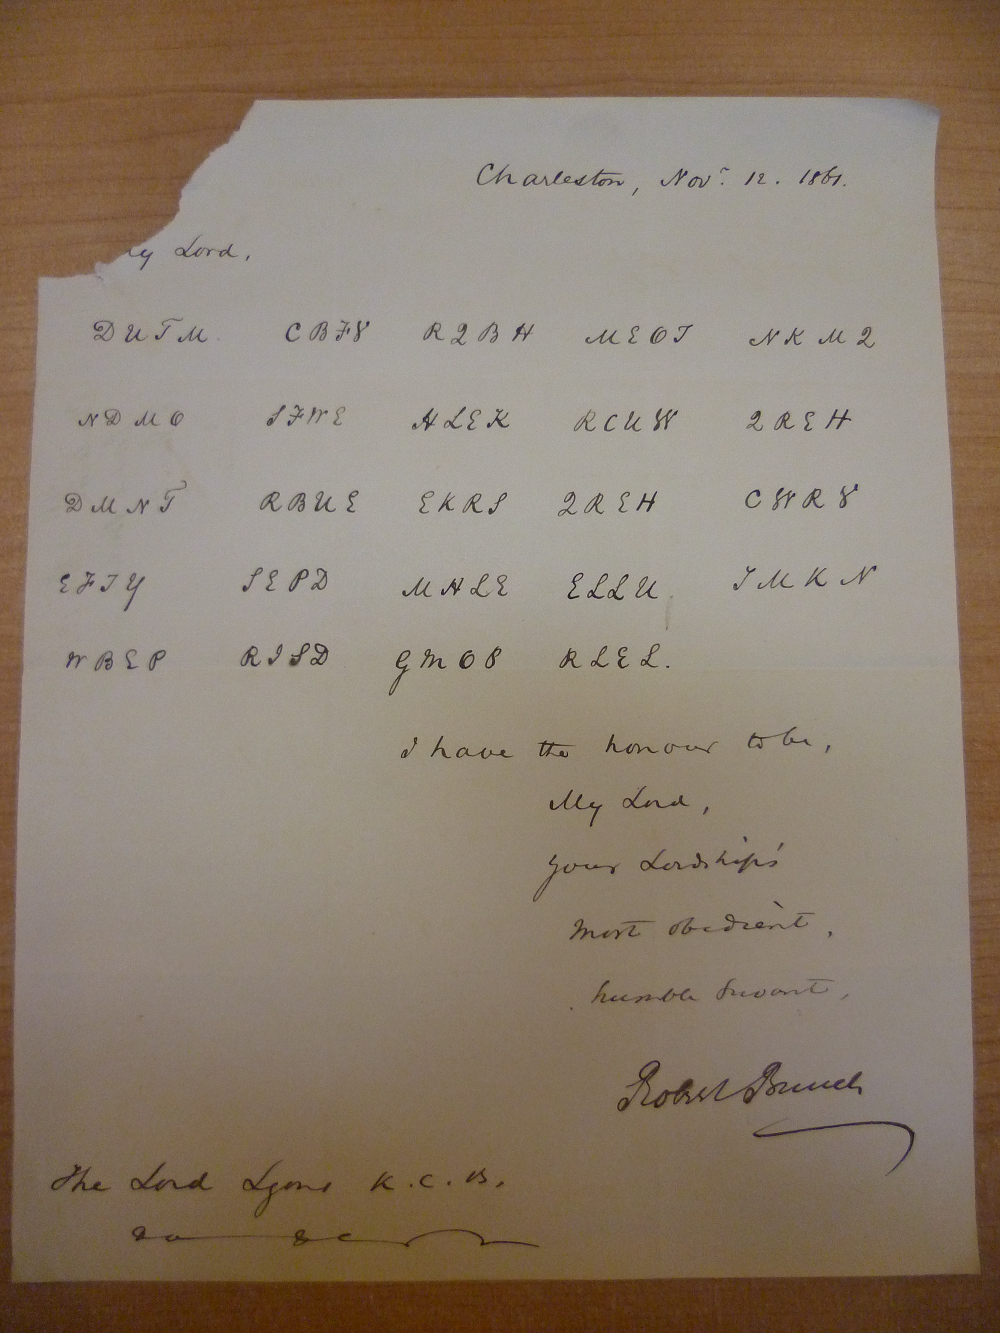 Charleston, Novr. 12. 1861.
My Lord,
DUTM. CBFV RQBH MEOT NKMQ
NDMO SFWE HLEK RCUW QREH
DMNT RBUE EKRS QREH CWRV
EFIY SEPD MHLE ELLU IMKN
WBEP RISD GMOP RLEL.
I have the honour to be,
My Lord,
Your Lordship's
Most obedient,
humble Servant,
Robert Bunch
The Lord Lyons K.C.B.
&c &c